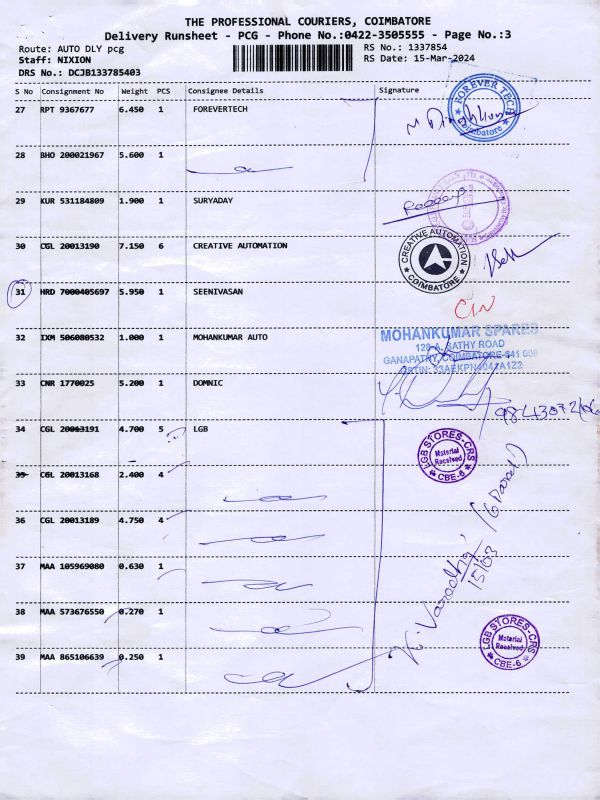 THE PROFESSIONAL COURIERS, COIMBATORE
Delivery Runsheet - PCG - Phone No.:0422-3505555 - Page No.:3
Route: AUTO DLY pcg RS No.: 1337854
Staff: NIXION RS Date: 15-Mar-2024
DRS No.: DCJB133785403
S No Consignment No Weight PCS Consignee Details Signature
27 RPT 9367677 6.450 1 FOREVERTECH
FOREVER TECH
Coimbatore
28 BHO 200021967 5.600 1
29 KUR 531184809 1.900 1 SURYADAY
30 CGL 20013190 7.150 6 CREATIVE AUTOMATION
CREATIVE AUTOMATION
COIMBATORE
31 HRD 7000405697 5.950 1 SEENIVASAN
32 IXM 506080532 1.000 1 MOHANKUMAR AUTO
MOHANKUMAR SPARES
GANAPATHY, COIMBATORE-641 006
33 CNR 1770025 5.200 1 DOMNIC
34 CGL 20013191 4.700 5 LGB
LGB STORES-CRS
Material
Received
CBE-6
35 CGL 20013168 2.400 4
36 CGL 20013189 4.750 4
37 MAA 105969080 0.630 1
(6 Parcel)
15/03
38 MAA 573676550 0.270 1
39 MAA 865106639 0.250 1
LGB STORES-CRS
Material
Received
CBE-6